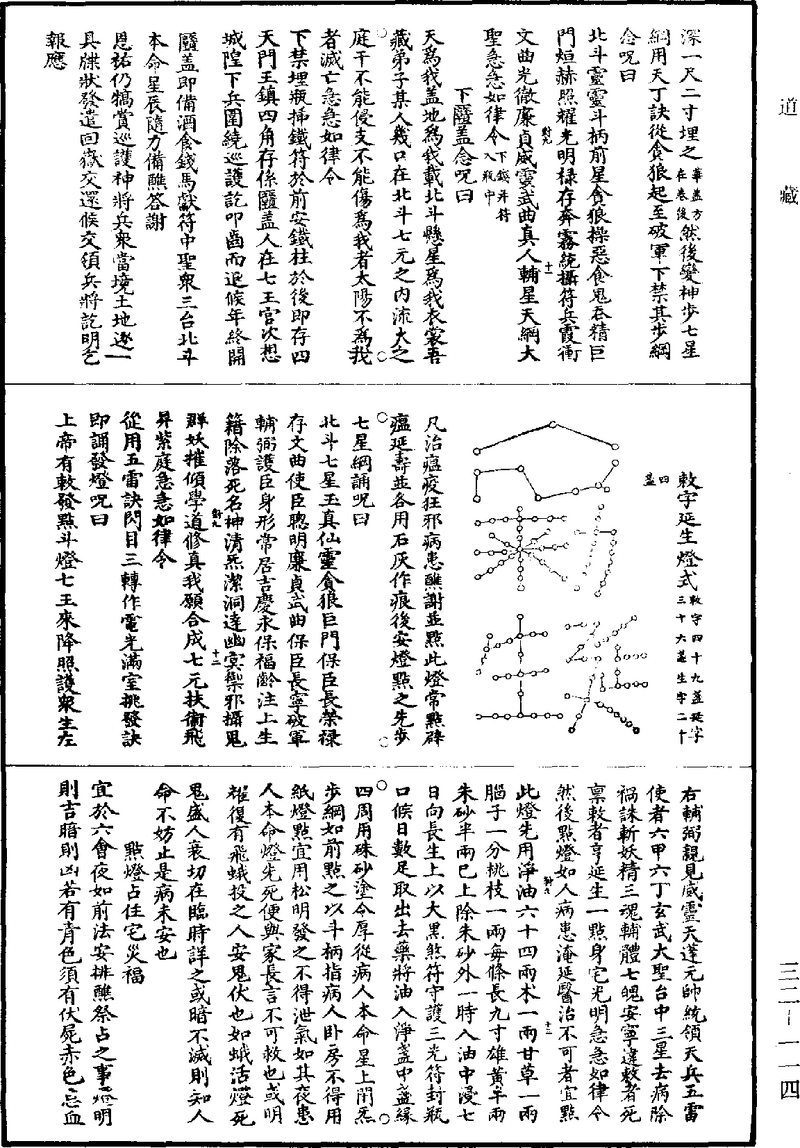 道藏
深一尺二寸埋之華蓋方在卷後然後變神步七星
綱用天丁訣從貪狼起至破軍下禁其步綱
念呪曰
北斗靈靈斗柄前星貪狼操惡食鬼吞精巨
門烜赫照耀光明祿存奔霧統攝符兵霞衝
文曲光徹廉貞威靈武曲真人輔星天綱大
聖急急如律令下鐵并符入瓶中
下靨蓋念呪曰
天爲我蓋地爲我載北斗懸星爲我衣裳吾
藏弟子某人幾口在北斗七元之內沭大之
庭干不能侵支不能傷爲我者太陽不爲我
者滅亡急急如律令
下禁埋瓶插鐵符於前安鐵柱於後即存四
天門王鎮四角存係靨蓋人在七王宮次想
城隍下兵圍繞巡護訖叩齒而退候年終開
靨蓋即備酒食錢馬獻符中聖衆三台北斗
本命星辰隨方備醮答謝
恩祐仍犒賞巡護神將兵衆當境土地逐一
具牒狀發遣回嶽交還候交領兵將訖明乞
報應
敕字延生燈式敕字四十九盞延字三十六盞生字二十四盞
凡治瘟疫狂邪病患醮謝並點此燈常點辟
瘟延壽並各用石灰作痕後安燈點之先步
七星綱誦呪曰
北斗七星玉真仙靈貪狼巨門保臣長榮祿
存文曲使臣聰明廉貞武曲保臣長寧破軍
輔弼護臣身形常居吉慶永保福齡注上生
籍除落死名神清炁潔洞達幽冥禦邪攝鬼
群妖摧傾學道修真我願合成七元扶衛飛
昇紫庭急急如律令
從用五雷訣閃目三轉作電光滿室挑發訣
即誦發燈呪曰
上帝有敕發點斗燈七王來降照護衆生左
右輔弼親見威靈天蓬元帥統領天兵五雷
使者六甲六丁玄武大聖台中三星去病除
禍誅斬妖精三魂輔體七魄安寧違敕者死
稟敕者亨延生一點身宅光明急急如律令
然後點燈如人病患淹延醫治不可者宜點
此燈先用淨油六十四兩术一兩甘草一兩
腦子一分桃枝一兩每條長九寸雄黃半兩
朱砂半兩已上除朱砂外一時入油中浸七
日向長生上以大黑煞符守護三光符封瓶
口候日數足取出去藥將油入淨盞中盞緣
四周用硃砂塗令厚從病人本命星上閉炁
步綱如前點之以斗柄指病人卧房不得用
紙燈點宜用松明發之不得泄氣如其夜患
人本命燈先死便與家長言不可救也或明
耀復有飛蛾投之人安鬼伏也如蛾活燈死
鬼盛人衰切在臨時詳之或暗不滅則知人
命不妨止是病未安也
點燈占住宅災福
宜於六會夜如前法安排醮祭占之事燈明
則吉暗則凶若有青色須有伏屍赤色忘血
三二一一一四